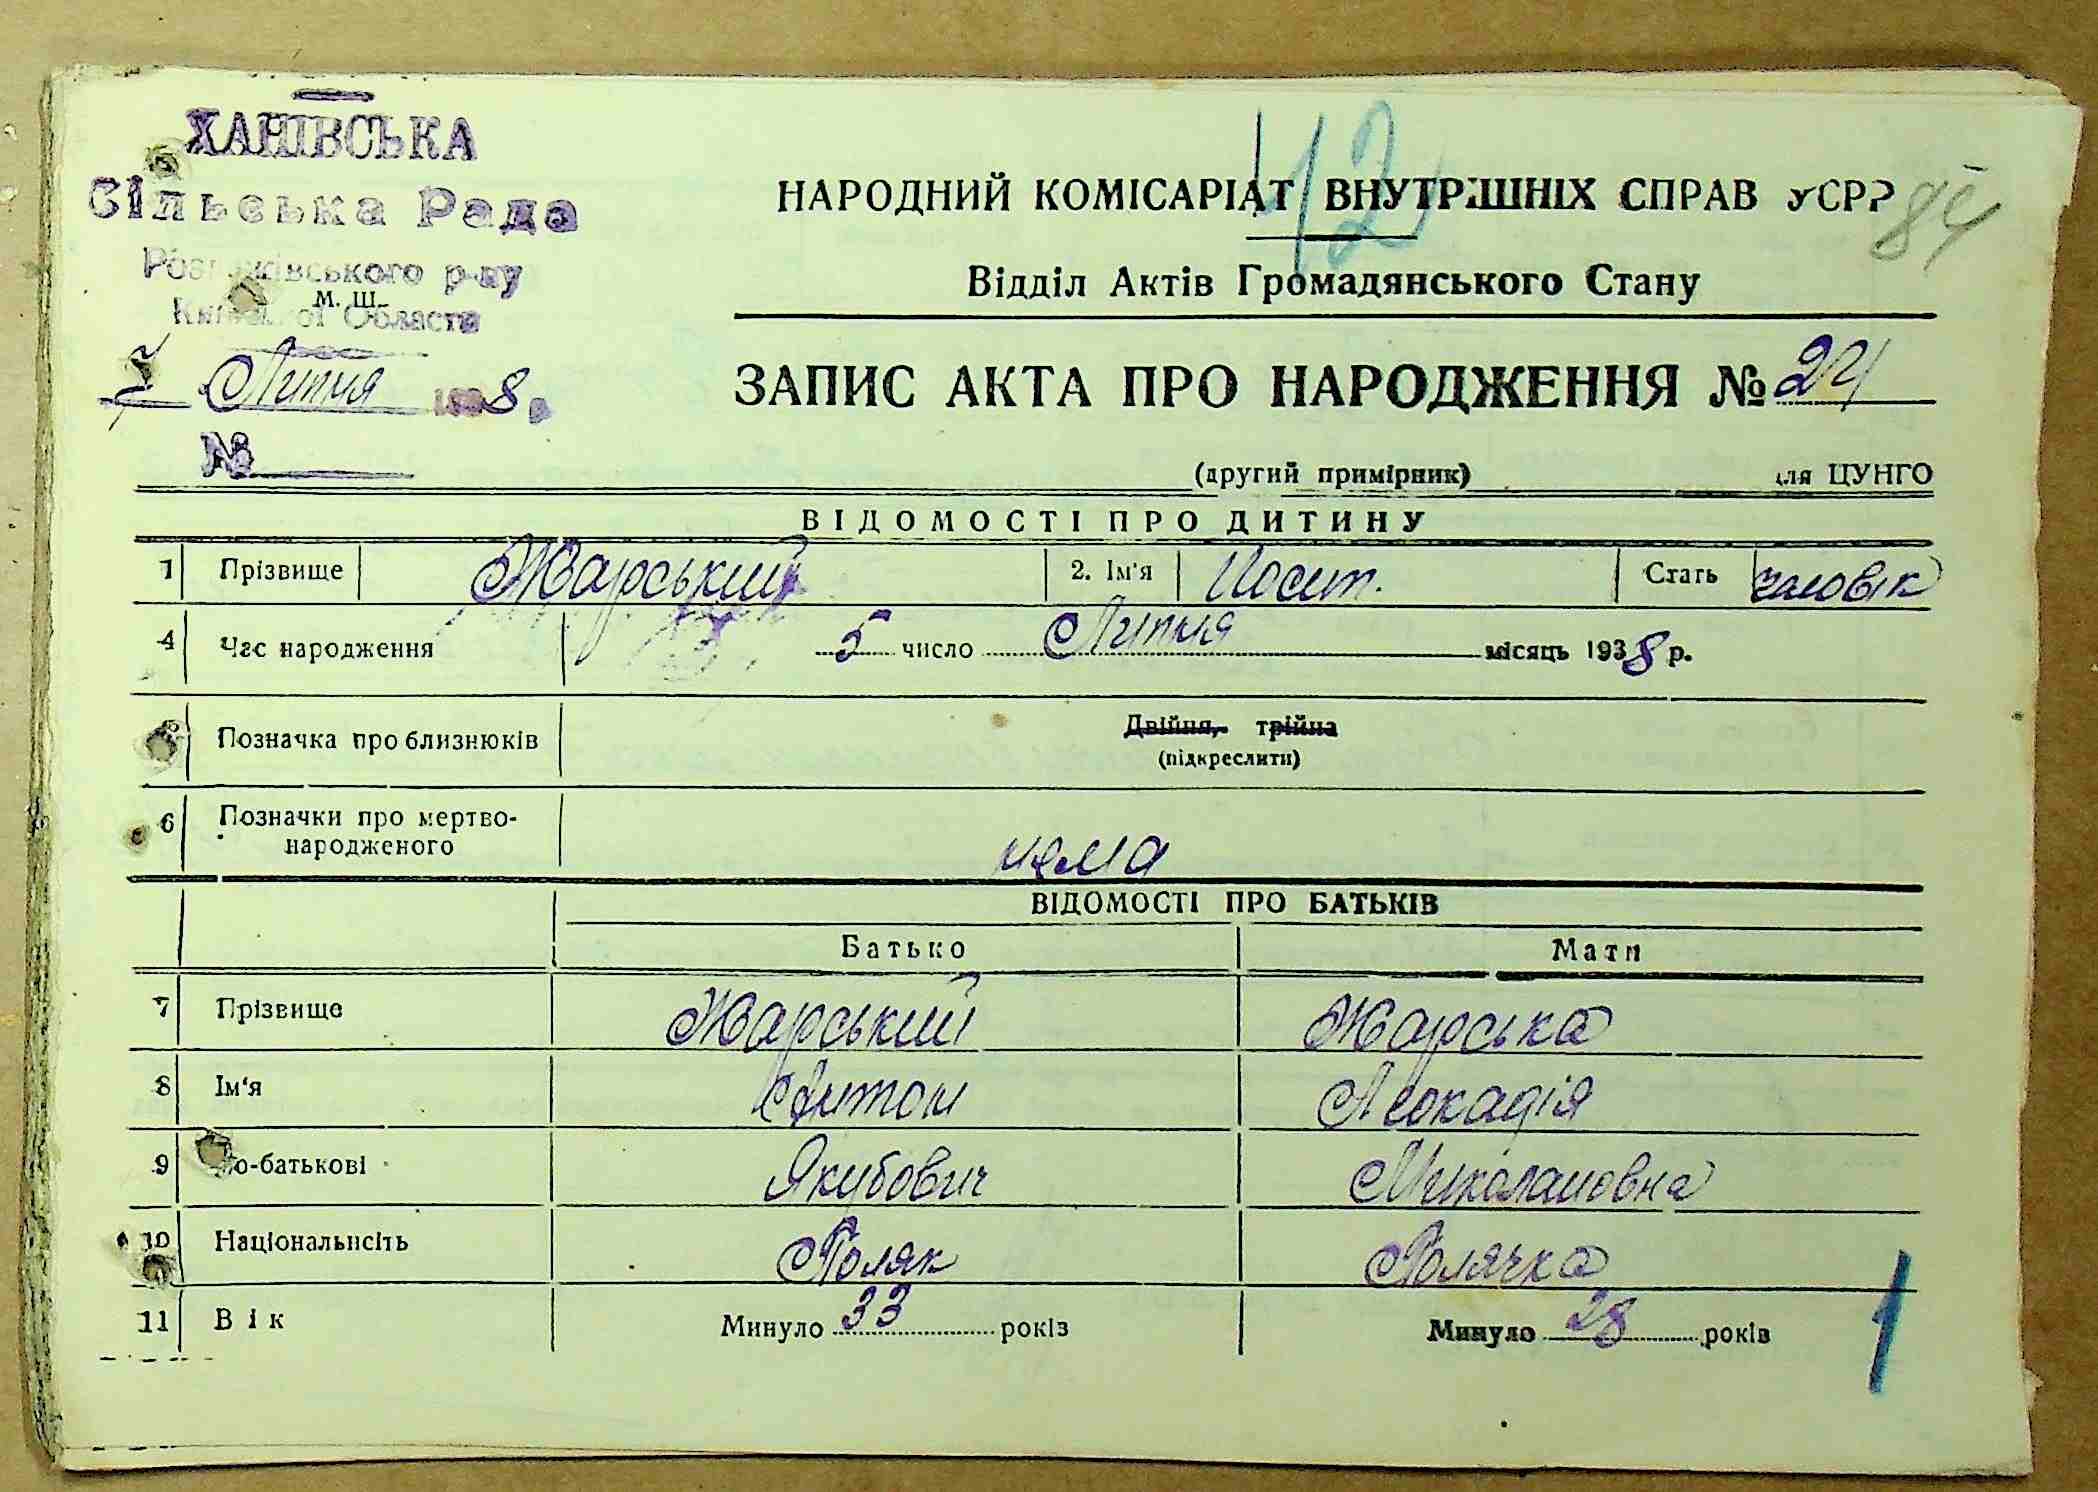 ХАНІВСЬКА
Сільська Рада
р-ну
М. Ш.
Области
7 Липня 1938 р.
№
42
84
НАРОДНИЙ КОМІСАРІАТ ВНУТРІШНІХ СПРАВ УСРР
Відділ Актів Громадянського Стану
ЗАПИС АКТА ПРО НАРОДЖЕННЯ № 24
(другий примірник) для ЦУНГО
ВІДОМОСТІ ПРО ДИТИНУ
1 Прізвище Жарський 2. Ім'я Йосип. Стать чоловік
4 Час народження 5 число Липня місяць 1938 р.
Позначка про близнюків Двійня, трійна
(підкреслити)
6 Позначки про мертво-
народженого нема
ВІДОМОСТІ ПРО БАТЬКІВ
Батько Мати
7 Прізвище Жарський Жарська
8 Ім'я Антон Леокадія
9 По-батькові Якубович Миколаиовна
10 Національність Поляк Полячка
11 Вік Минуло 33 років Минуло 28 років
1